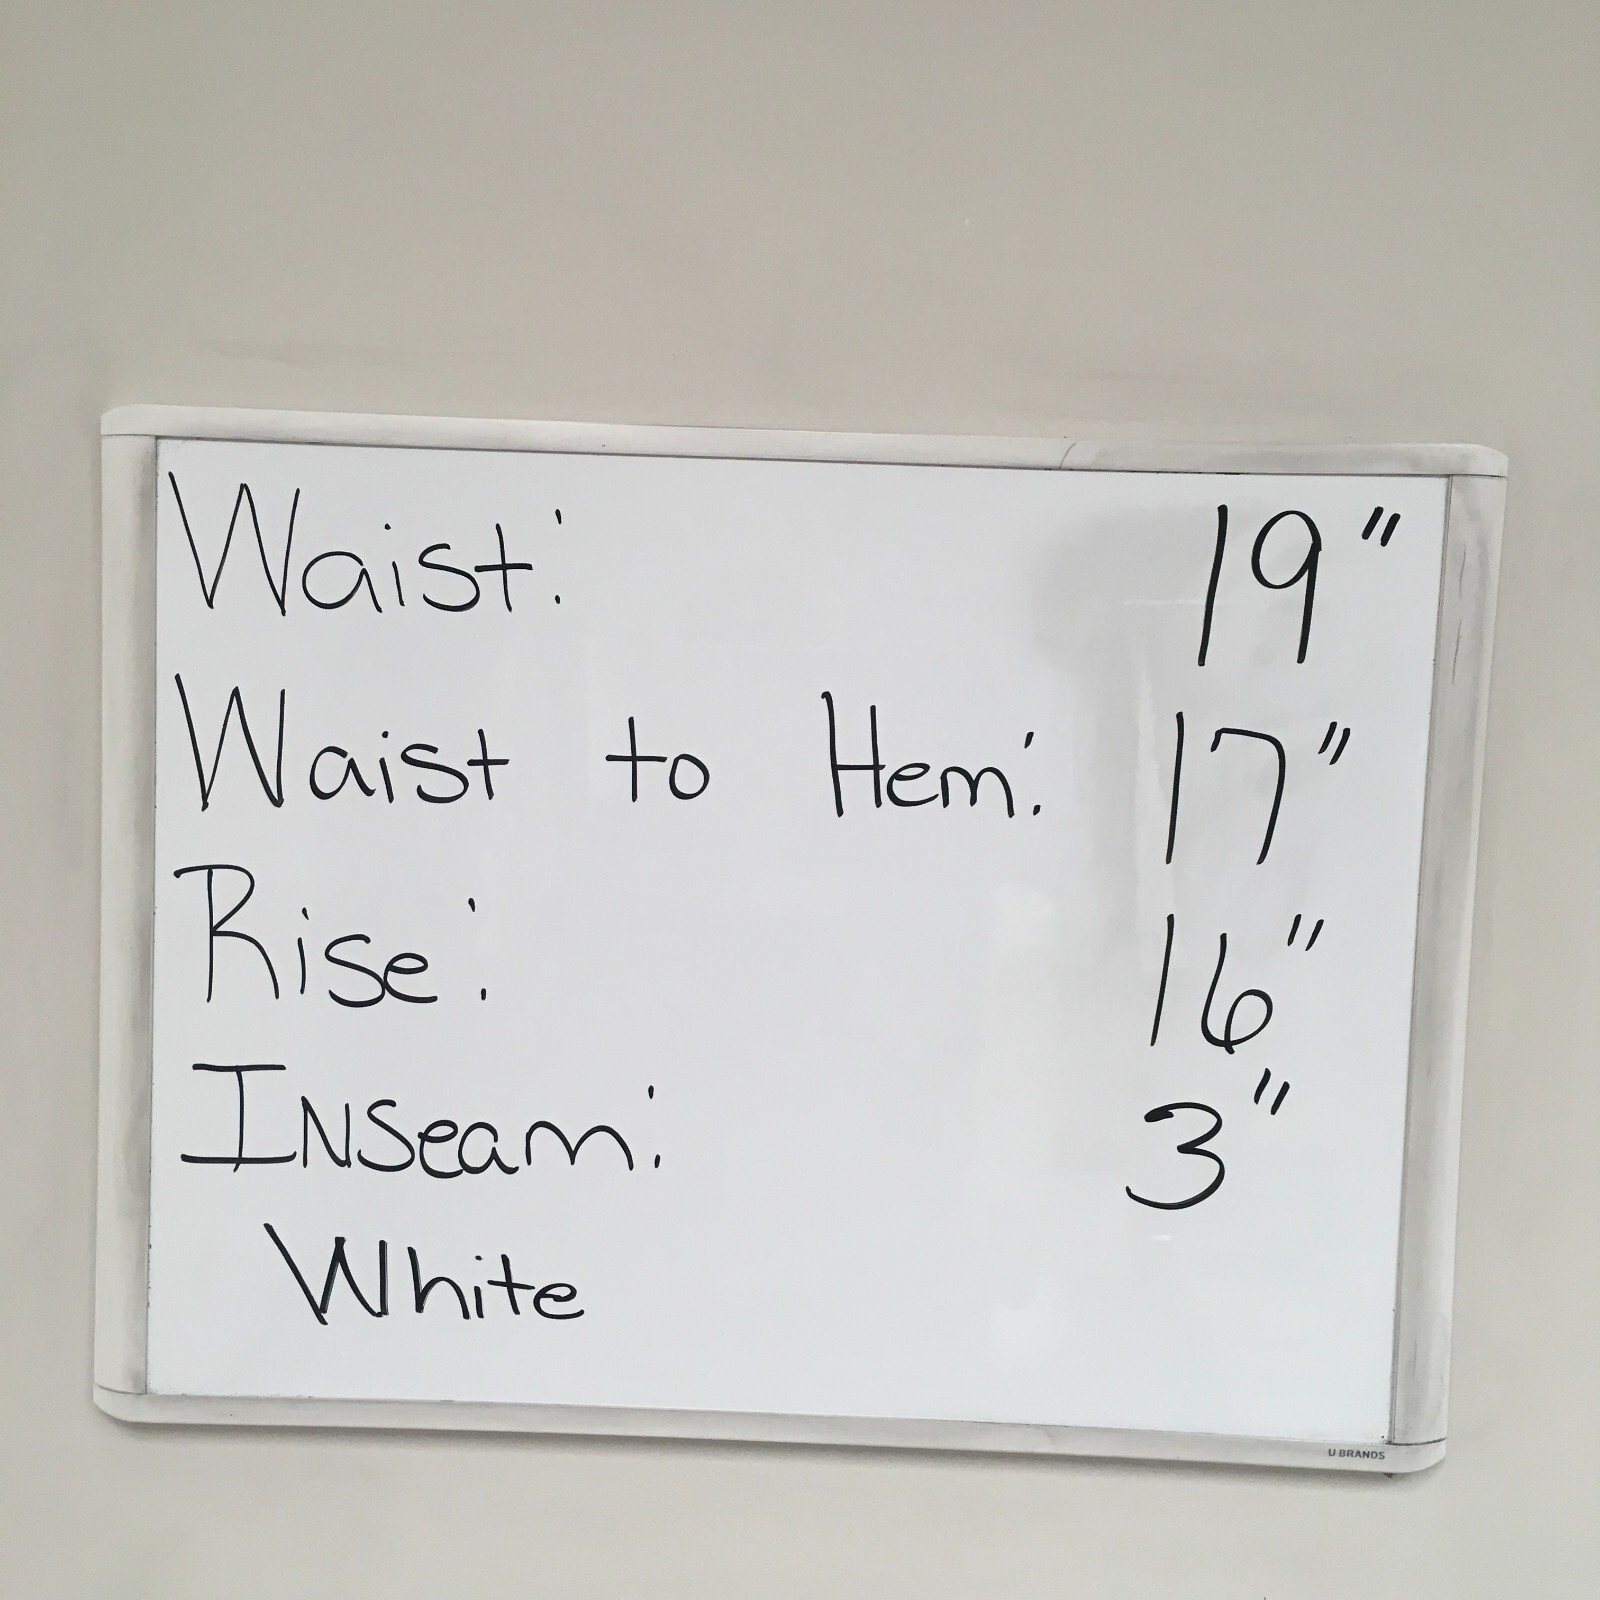 Waist: 19"
Waist to Hem: 17"
Rise: 16"
Inseam: 3"
White
U BRANDS